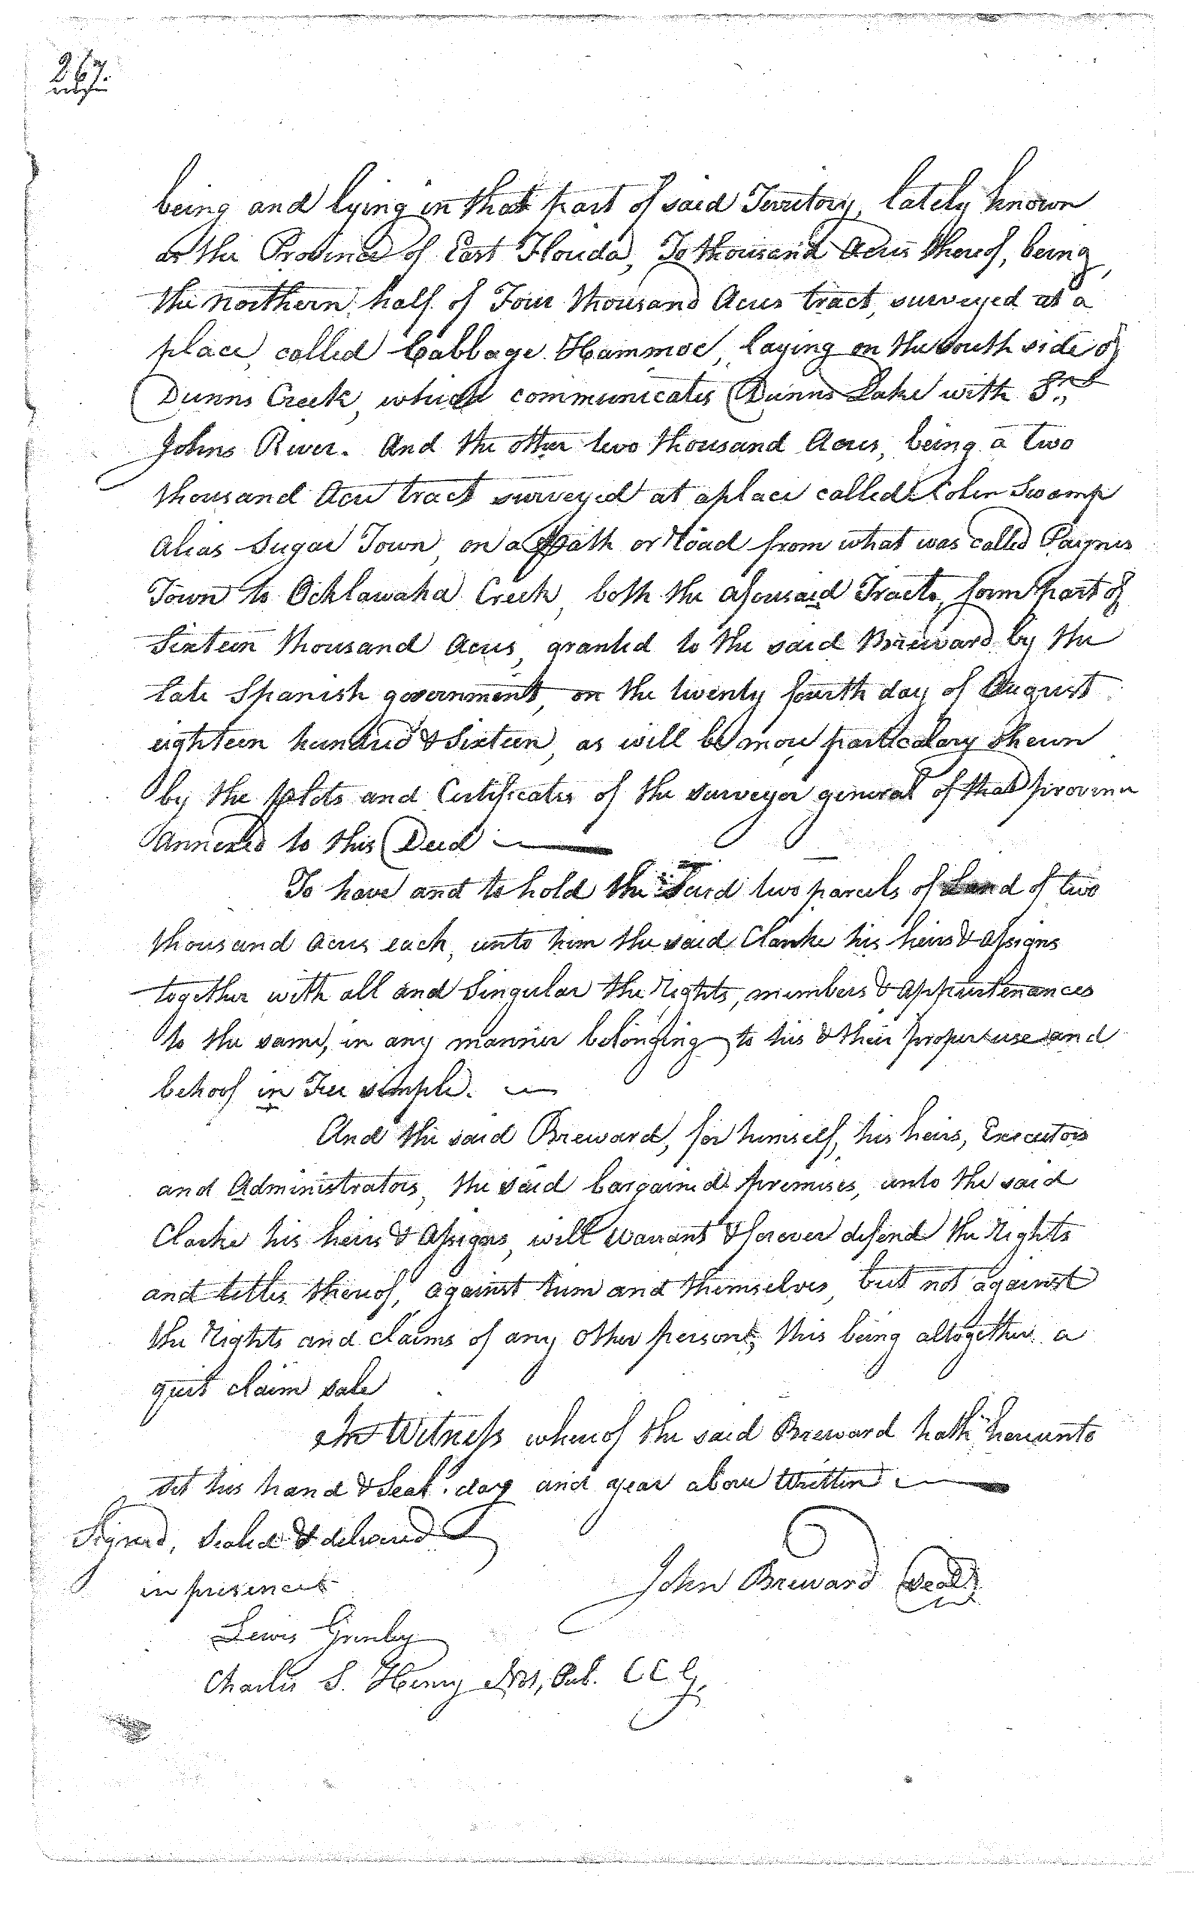 267.
being and lying in that part of said Territory, lately known
as the Province of East Florida, To thousand Acres thereof, being,
the northern half of Four thousand Acres tract, surveyed at a
place, called Cabbage Hammoc, laying on the south side of
Dunns Creek, which communicates Dunns Lake with St.
Johns River. And the other two thousand Acres, being a two
thousand Acre tract surveyed at a place called Colen Swamp
Alias Sugar Town, on a path or Road from what was called Paynes
Town to Ocklawaha Creek, both the aforesaid Tracts, form part of
Sixteen thousand Acres, granted to the said Breward by the
late Spanish government, on the twenty fourth day of August
eighteen hundred & Sixteen, as will be more particalary shewn
by the plots and Certificates of the surveyor general of that province
Annexed to this Deed
To have and to hold the Said two parcels of Land of two
thousand Acres each, unto him the said Clarke his heirs & Assigns
together with all and Singular the Rights, members & Appurtenances
to the same, in any manner belonging to his & their proper use and
behoof in Fee simple.
And the said Breward, for himself, his heirs, Executors
and Administrators, the said bargained premises, unto the said
Clarke his heirs & Assigns, will Warrant & forever defend the Rights
and titles thereof, against him and themselves, but not against
the Rights and claims of any other persons, this being altogether a
quit claim sale
In Witness whereof the said Breward hath hereunto
set his hand & Seal. day and year above Written
Signed, Sealed & delivered
in presence
John Breward Seal
Lewis Grenby
Charles S. Henry Not, Pub. C C G,